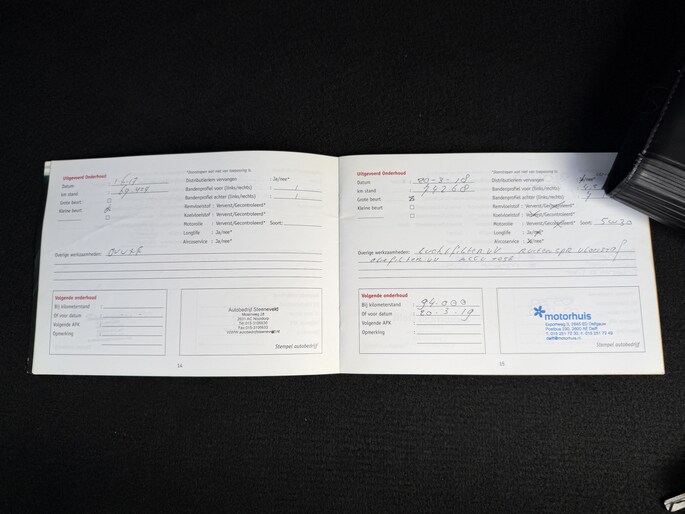 Uitgevoerd Onderhoud
*Doorstrepen wat niet van toepassing is
Datum
Distributieriem vervangen : Ja/nee*
km stand
Bandenprofiel voor (links/rechts) : /
Grote beurt
Bandenprofiel achter (links/rechts) : /
Kleine beurt
Remvloeistof : Ververst/Gecontroleerd*
Koelvloeistof : Ververst/Gecontroleerd*
Motorolie : Ververst/Gecontroleerd* Soort:
Longlife : Ja/nee*
Aircoservice : Ja/nee*
Overige werkzaamheden:
Volgende onderhoud
Bij kilometerstand :
Of voor datum :
Volgende APK :
Opmerking :
Autobedrijf Steenevelt
Stempel autobedrijf
14
Uitgevoerd Onderhoud
*Doorstrepen wat niet van toepassing is
Datum : 20-3-18
Distributieriem vervangen : Ja/nee*
km stand : 74268
Bandenprofiel voor (links/rechts)
Grote beurt
Bandenprofiel achter (links/rechts)
Kleine beurt
Remvloeistof : Ververst/Gecontroleerd*
Koelvloeistof : Ververst/Gecontroleerd*
Motorolie : Ververst/Gecontroleerd* Soort: 5W30
Longlife : Ja/nee*
Aircoservice : Ja/nee*
Overige werkzaamheden: Luchtfilter
Oliefilter
Volgende onderhoud
Bij kilometerstand : 94.000
Of voor datum : 20-3-19
Volgende APK :
Opmerking :
motorhuis
Stempel autobedrijf
15